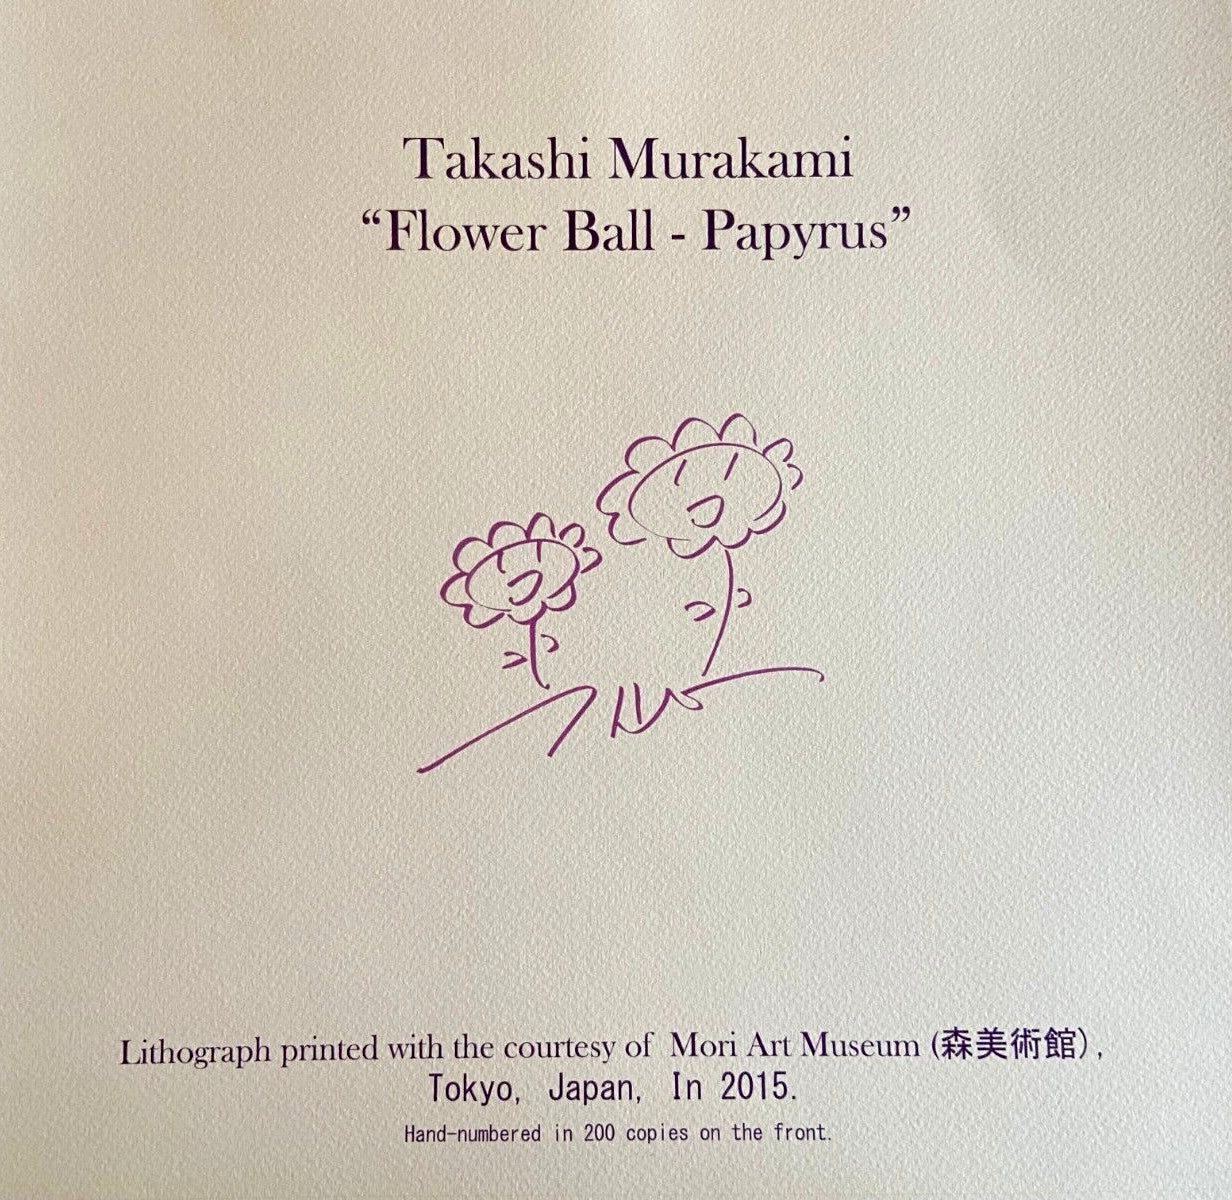 Takashi Murakami
“Flower Ball - Papyrus”
Lithograph printed with the courtesy of Mori Art Museum (森美術館),
Tokyo, Japan, In 2015.
Hand-numbered in 200 copies on the front.